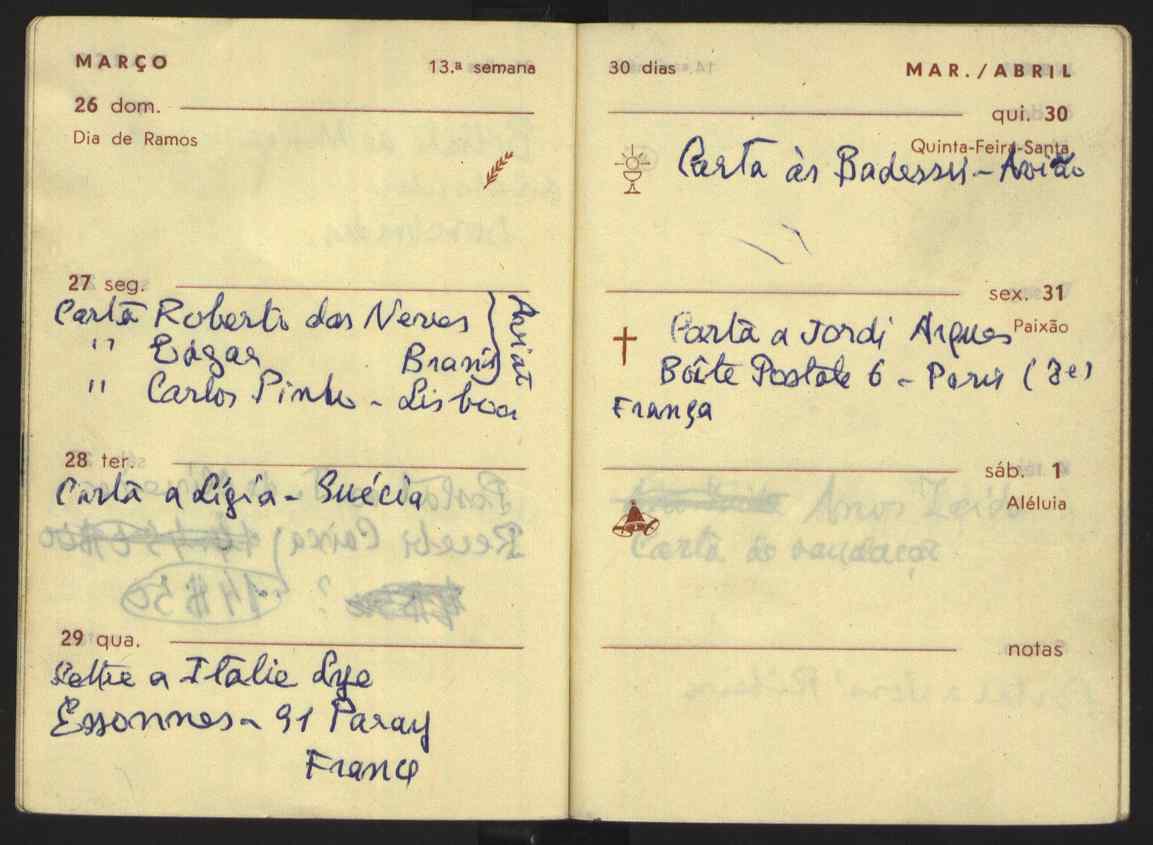 MARÇO
13.ª semana
26 dom.
Dia de Ramos
27 seg.
Carta Roberto das Neves
" Edgar Brasil
" Carlos Pinho - Lisboa
28 ter.
Carta a Lígia - Suécia
29 qua.
Lettre a Italie Lye
Essonnes - 91 Paray
France
30 dias
MAR./ABRIL
qui. 30
Quinta-Feira-Santa
Carta às - Avião
sex. 31
Paixão
Carta a Jordi Arques
Boîte Postale 6 - Paris
França
sáb. 1
Aléluia
notas